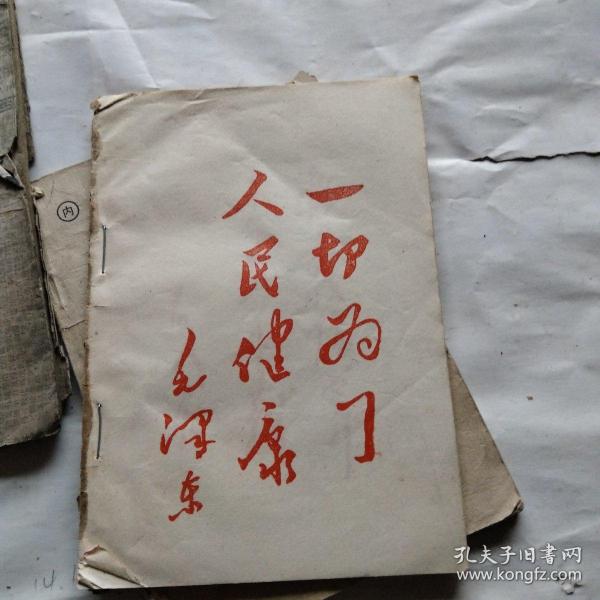 一切为了
人民健康
毛泽东
内
14.
孔夫子旧书网
www.kongfz.com